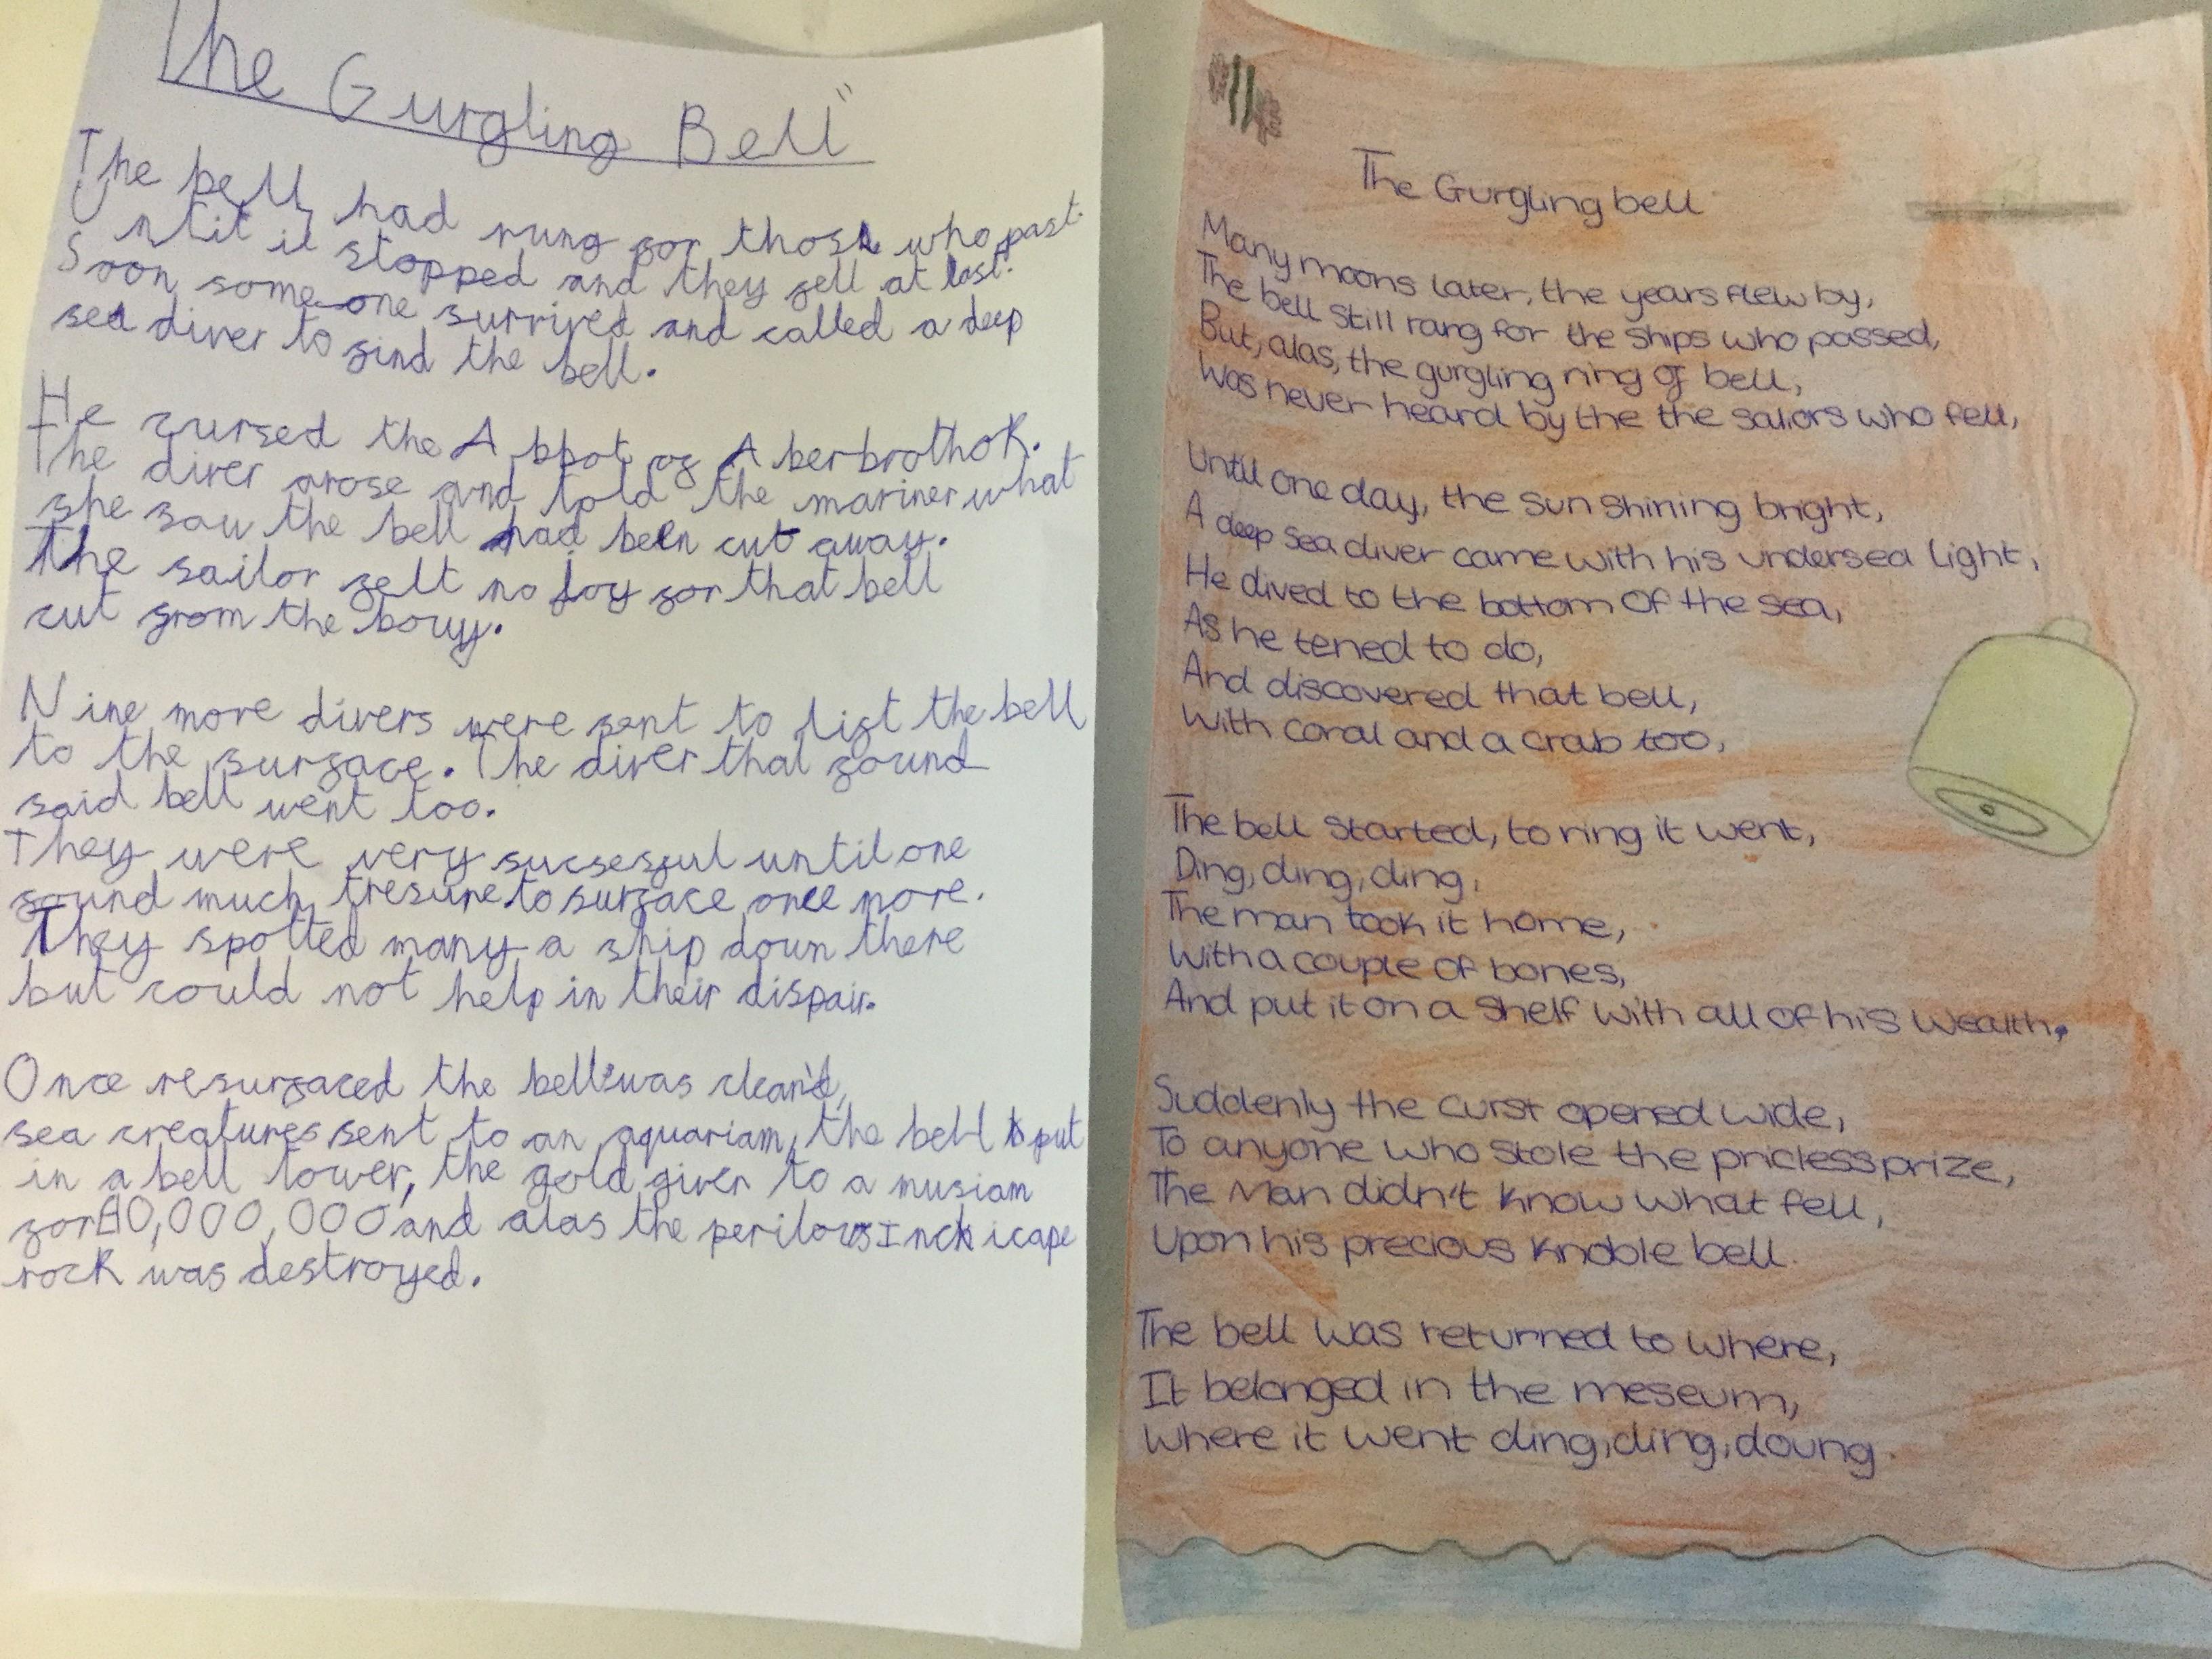 The Gurgling Bell"
The bell had rung for those who past.
Until it stopped and they fell at last.
Soon some one survived and called a deep
sea diver to find the bell.
He cursed the Abbot of Aberbrothok.
The diver arose and told the mariner what
she saw the bell had been cut away.
The sailor felt no joy for that bell
cut from the bouy.
Nine more divers were sent to lift the bell
to the surface. The diver that found
said bell went too.
They were very sucsesful until one
found much tresure to surface once more.
They spotted many a ship down there
but could not help in their dispair.
Once resurfaced the bell was clean'd,
sea creatures sent to an aquariam, the bell put
in a bell tower, the gold given to a musiam
for £10,000,000 and alas the perilous Inchicape
rock was destroyed.
The Gurgling bell
Many moons later, the years flew by,
The bell still rang for the ships who passed,
But, alas, the gurgling ring of bell,
Was never heard by the the sailors who fell,
Until one day, the sun shining bright,
A deep sea diver came with his undersea light,
He dived to the bottom of the sea,
As he tened to do,
And discovered that bell,
With coral and a crab too,
The bell started, to ring it went,
Ding, ding, ding,
The man took it home,
With a couple of bones,
And put it on a shelf with all of his wealth.
Suddenly the curst opened wide,
To anyone who stole the pricless prize,
The Man didn't know what fell,
Upon his precious knoble bell.
The bell was returned to where,
It belonged in the meseum,
Where it went ding, ding, doung.